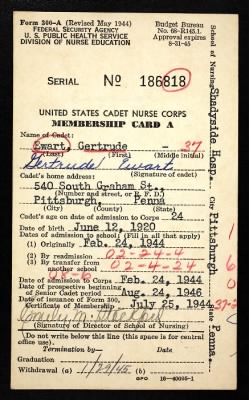 Form 300-A (Revised May 1944)
FEDERAL SECURITY AGENCY
U. S. PUBLIC HEALTH SERVICE
DIVISION OF NURSE EDUCATION
Budget Bureau
No. 68-R145.1.
Approval expires
8-31-45
SERIAL No 186818
UNITED STATES CADET NURSE CORPS
MEMBERSHIP CARD A
Name of Cadet:
Ewart, Gertrude - 37
(Last) (First) (Middle initial)
Gertrude Ewart
(Signature of cadet)
Cadet's home address:
540 South Graham St.,
(Number and street, or R. F. D.)
Pittsburgh, Penna
(City) (County) (State)
Cadet's age on date of admission to Corps 24
Date of birth June 12, 1920
Dates of admission to school (Fill in all that apply)
(1) Originally Feb. 24, 1944
(2) By readmission 02-24-4
(3) By transfer from another school 02-4-24
Date of admission to Corps Feb. 24, 1944
Date of prospective beginning
of Senior Cadet period Aug. 24, 1946
Date of issuance of Form 300,
Certificate of Membership July 25, 1944
(Signature of Director of School of Nursing)
Do not write below this line (this space is for central
office use).
Termination by— Date
Graduation
Withdrawal (a) 1/29/45
GPO 16-40095-1
School of Nursing Shadyside Hosp. City Pittsburgh State Penna.